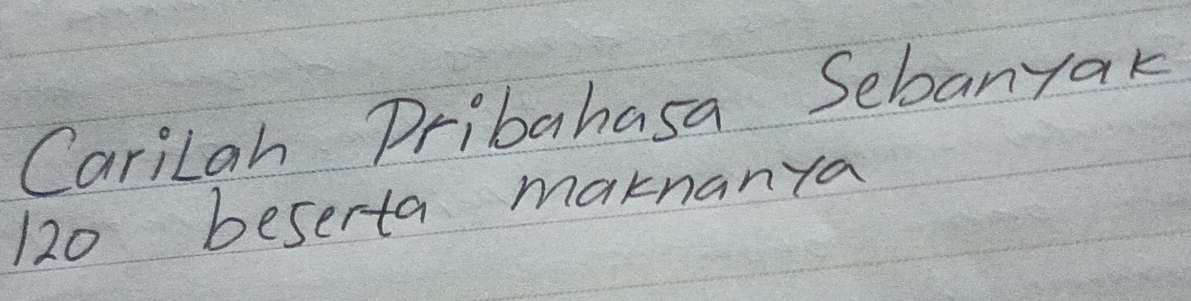 Carilah Pribahasa Sebanyak
120 beserta maknanya